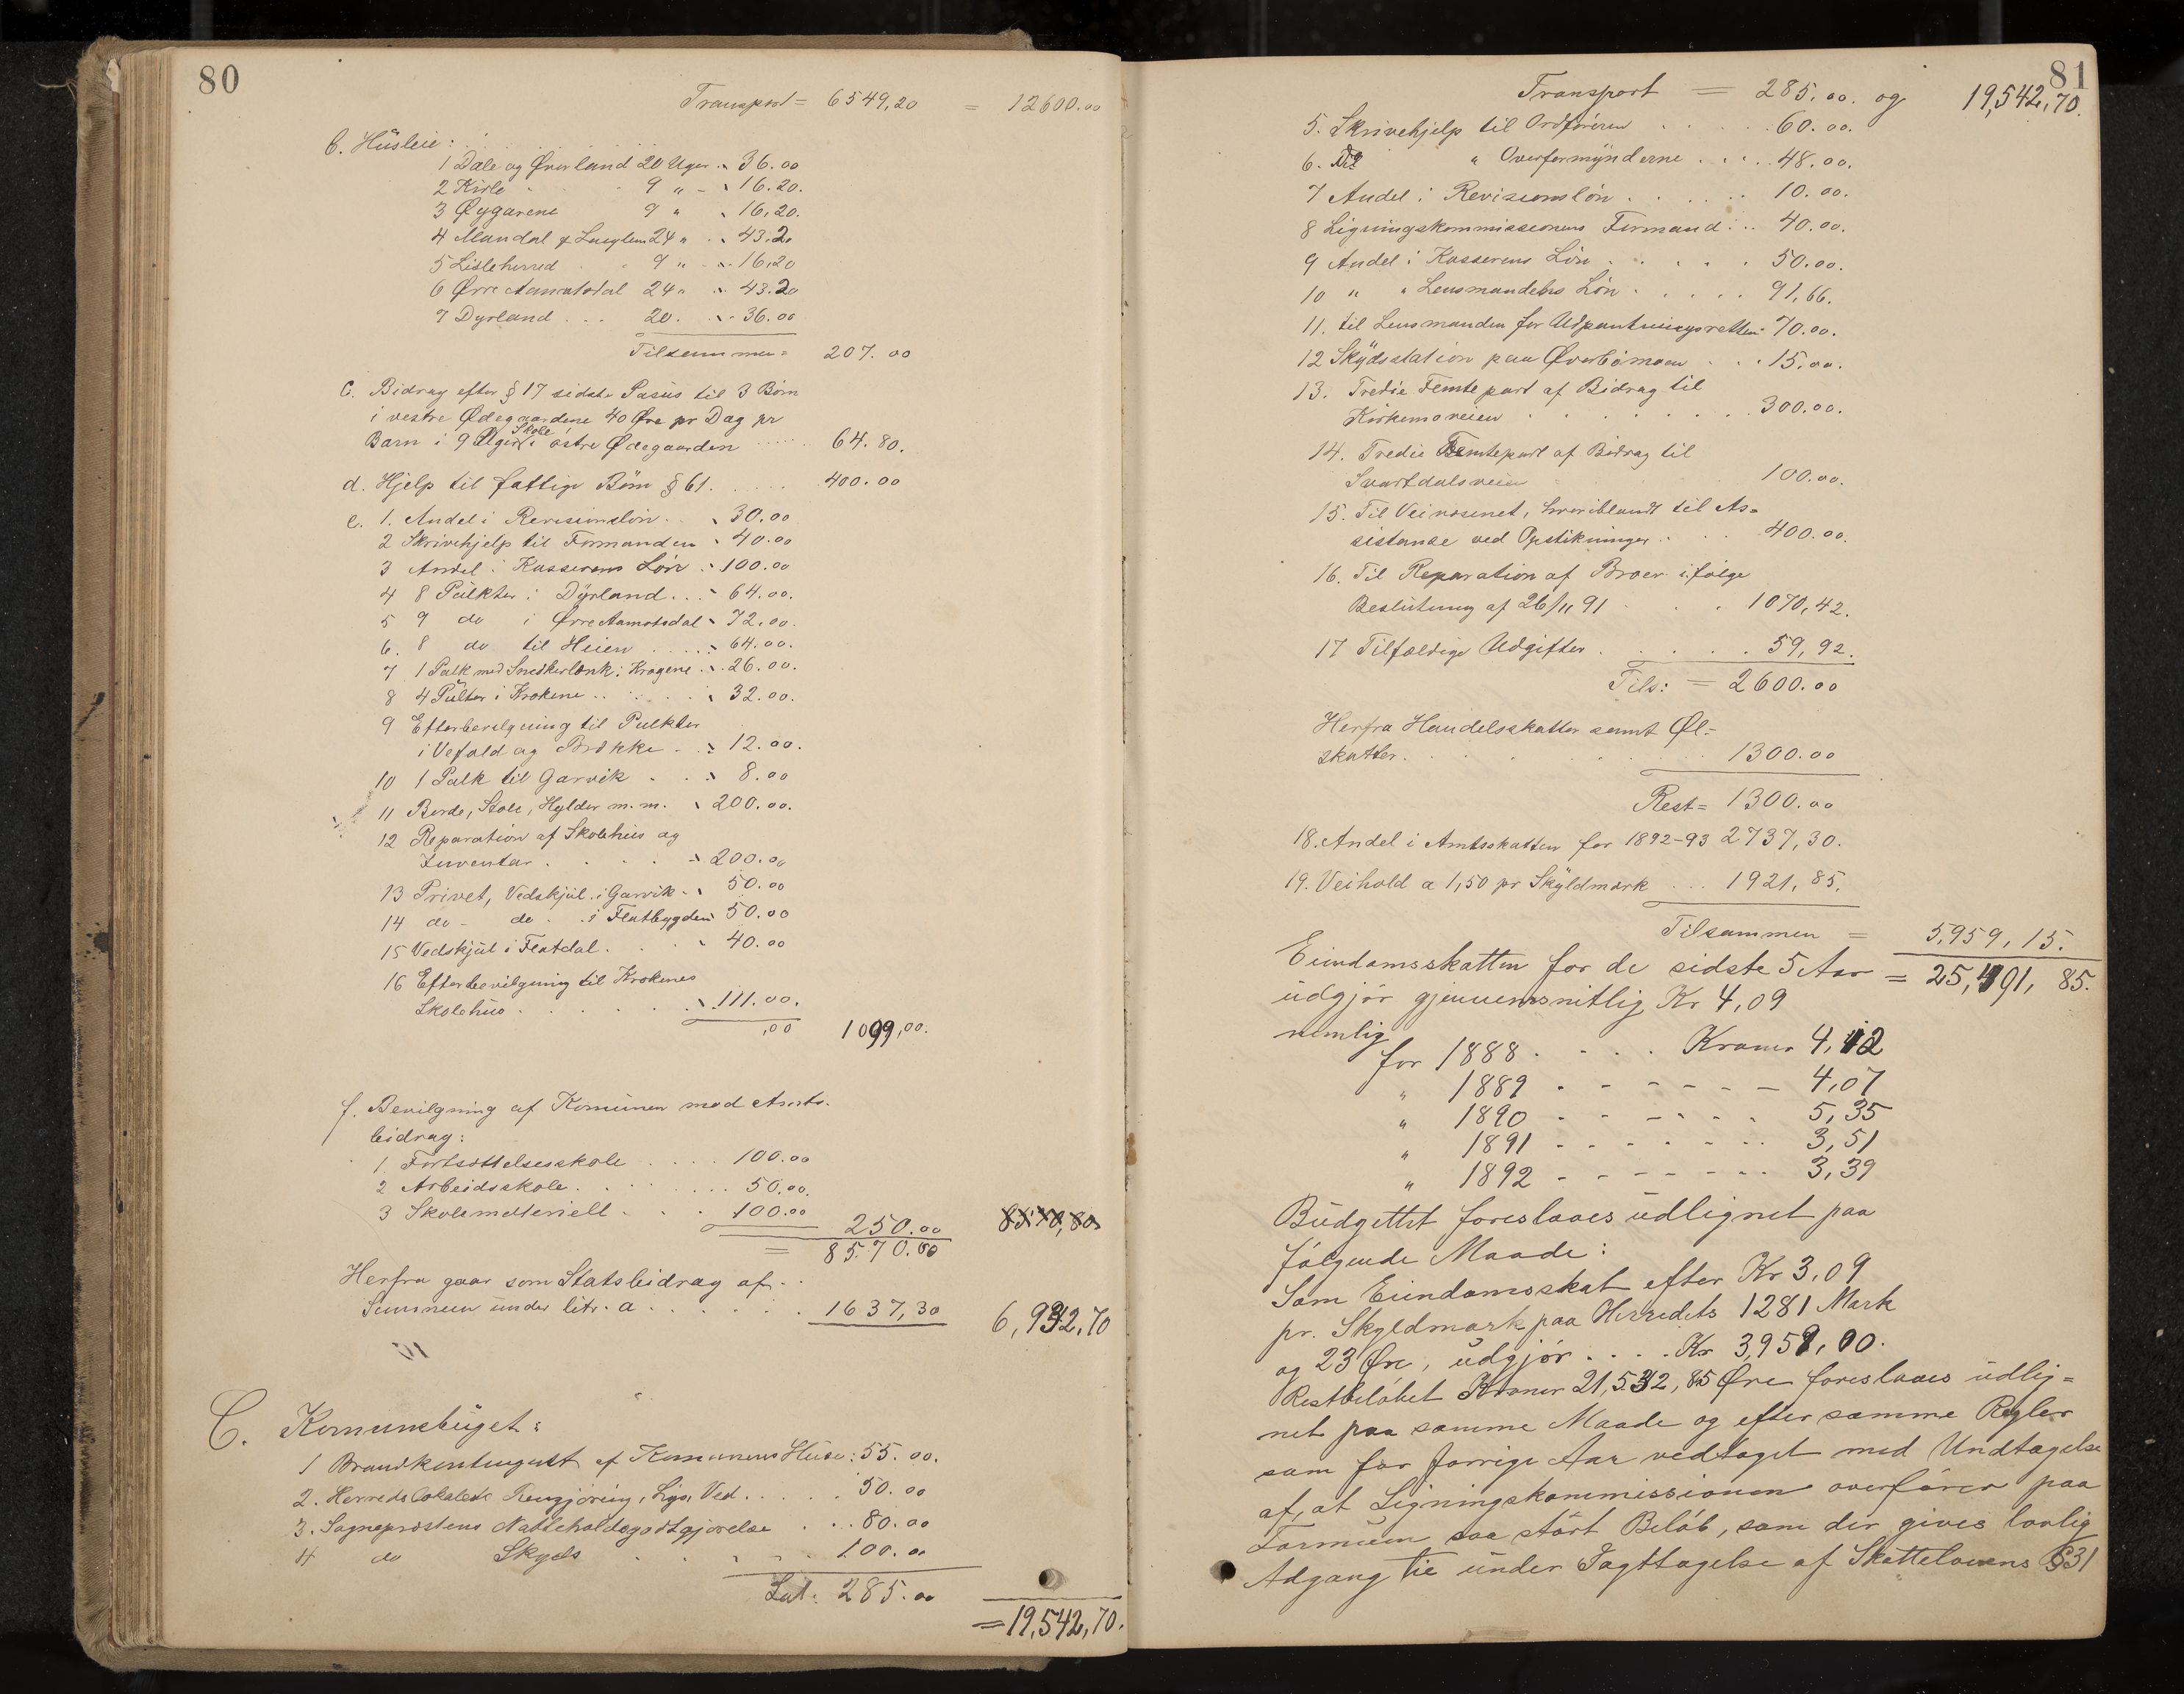 80
Transport = 6549,20 = 12600.00
b. Húsleie:
1 Dale og Överland 20 Uger 36.00
2 Kirle 9 " 16.20.
3 Øygarene 9 " 16,20.
4 Mandal & 24 " 43.20
5 Lisleherred 9 " 16,20
6 Ørre Aamotsdal 24 " 43.20
7 Dyrland . . . 20. 36.00
Tilsammen = 207.00
C. Bidrag efter § 17 sidste Pasus til 3 Børn
i vestre Ødegaardene 40 Øre pr Dag pr
Skole
Barn i 9 Uger i østre Ødegaarden 64.80.
d. Hjelp til fattige Børn § 61. 400.00
e. 1. Andel i Revisionslön 30.00
2 Skrivehjelp til Formanden 40.00
3 Andel i Kasserens Lön 100.00
4 8 Pulkter i Dyrland . . . 64.00.
5 9 do i Ørre Aamotsdal 72.00.
6. 8 do til Heien 64.00.
7 1 Pulk med Snedkerbænk i Krogene 26.00.
8 4 Pulter i Krokene 32.00.
9 Efterbevilgning til Pulkter
i Vefald og Brikke 12.00.
10 1 Pulk til Garvik 8.00
11 Borde, Stole, Hylder m.m. 200.00.
12 Reparation af Skolehus og
Inventar 200.00
13 Privet, Vedskjul i Garvik 50.00
14 do - do - i Flatbygden 50.00
15 Vedskjul i Flatdal 40.00
16 Efterbevilgning til Krokenes
Skolehus 111.00.
,00 1099,00.
f. Bevilgning af Komunen med Amts-
bidrag:
1 Fortsættelsesskole . . . . 100.00
2 Arbeidsskole 50.00.
3 Skolemateriell 100.00
250.00 8570,80
= 8570.00
Herfra gaar som Statsbidrag af
Summen under litr. a 1637,30 6,932,70
C. Komunebuget:
1 Brandkontingent af Komunens Huse: 55.00.
2. Herredslokalets Rengjöring, Lys, Ved. 50.00
3. Sogneprestens Natteholdsgodtgjørelse 80.00
4 do Skyds 100.00
Lat. 285.00
= 19,542,70.
81
Transport = 285.00. og 19,542,70.
5. Skrivehjelp til Ordföreren 60.00.
6. Do " Overformynderne 48.00.
7 Andel i Revisionslön 10.00.
8 Ligningskommissionens Formand 40.00.
9 Andel i Kasserens Lön 50.00.
10 " " Lensmandens Lön 91,66.
11. til Lensmanden for Udpantningsretten 70.00.
12 Skydsstation paa Øverbömoen 15.00.
13. Tredie Femtepart af Bidrag til
Kirkemoveien 300.00.
14. Tredie Femtepart af Bidrag til
Svartdalsveien 100.00.
15. Til Veivæsenet, hvoriblandt til As-
sistanse ved Opstikninger 400.00.
16. Til Reparation af Broer ifølge
Beslutning af 26/11 91 1070,42.
17 Tilfældige Udgifter 59,92.
Tils: = 2600.00
Herfra Handelsskatter samt Øl-
skatter. 1300.00
Rest = 1300.00
18. Andel i Amtsskatten for 1892-93 2737,30.
19. Veihold a 1,50 pr Skyldmark . . . 1921,85.
Tilsammen = 5,959,15.
Eiendomsskatten for de sidste 5 Aar = 25,491,85.
udgjør gjennemsnitlig Kr 4,09
nemlig
for 1888 . . . . Kroner 4,12
" 1889 - - - - - - 4,07
" 1890 - - - - - - 5,35
" 1891 - - - - - - 3,51
" 1892 - - - - - - 3,39
Budgettet foreslaaes udlignet paa
følgende Maade:
Som Eiendomsskat efter Kr 3,09
pr. Skyldmark paa Herredets 1281 Mark
og 23 Øre, udgjør . . . . Kr 3,959,00.
Restbeløbet Kroner 21,532,85 Øre foreslaaes udlig-
net paa samme Maade og efter samme Regler
som for forrige Aar vedtaget med Undtagelse
af, at Ligningskommissionen overfører paa
Formuen saa stört Beløb, som der gives lovlig
Adgang til under Iagttagelse af Skattelovens § 31